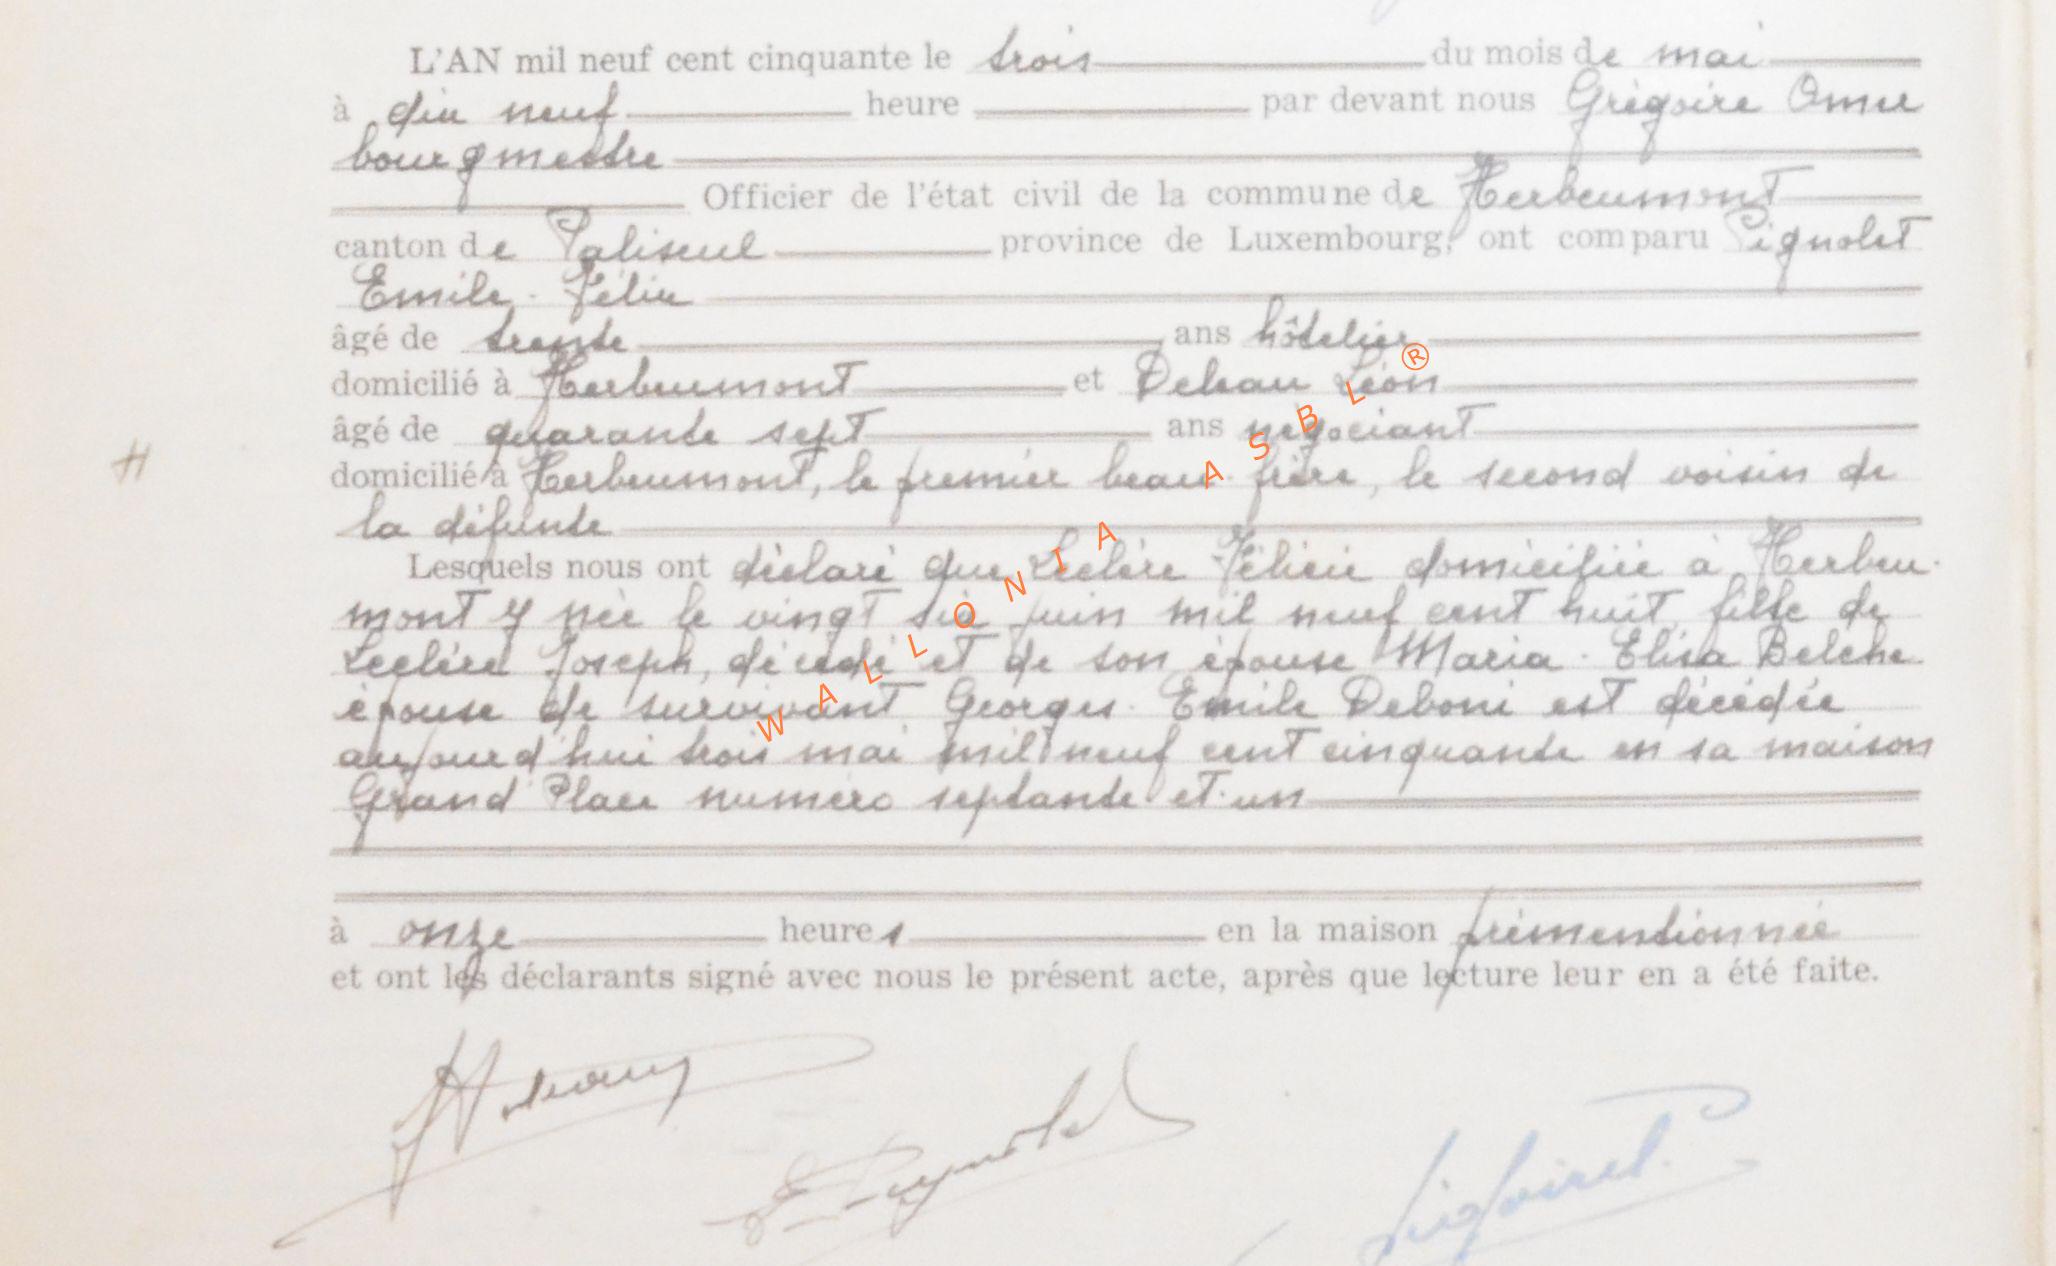 L'AN mil neuf cent cinquante le trois du mois de mai
à dix neuf heure par devant nous Grégoire Omer
bourgmestre
Officier de l'état civil de la commune de Herbeumont
canton de Paliseul province de Luxembourg, ont comparu Pignolet
Emile - Félix
âgé de trente ans hôtelier
domicilié à Herbeumont et Deleau Léon
âgé de quarante sept ans négociant
domicilié à Herbeumont, le premier beau-frère, le second voisin de
la défunte
Lesquels nous ont déclaré que Leclère Félicie domiciliée à Herbeu-
mont y née le vingt six juin mil neuf cent huit, fille de
Leclère Joseph, décédé et de son épouse Maria-Elisa Belche
épouse de survivant Georges-Emile Deboni est décédée
aujourd'hui trois mai mil neuf cent cinquante en sa maison
Grand Place numéro septante-et-un
à onze heures en la maison prémentionnée
et ont les déclarants signé avec nous le présent acte, après que lecture leur en a été faite.
WALLONIA ASBL®
H